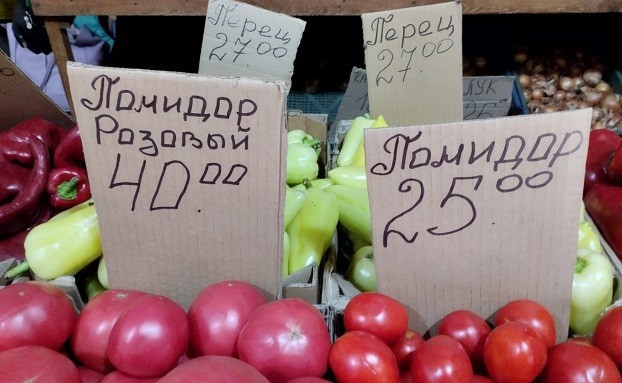 Перец
27.00
Перец
27.00
ЛУК
Помидор
Розовый
40 00
Помидор
25 00